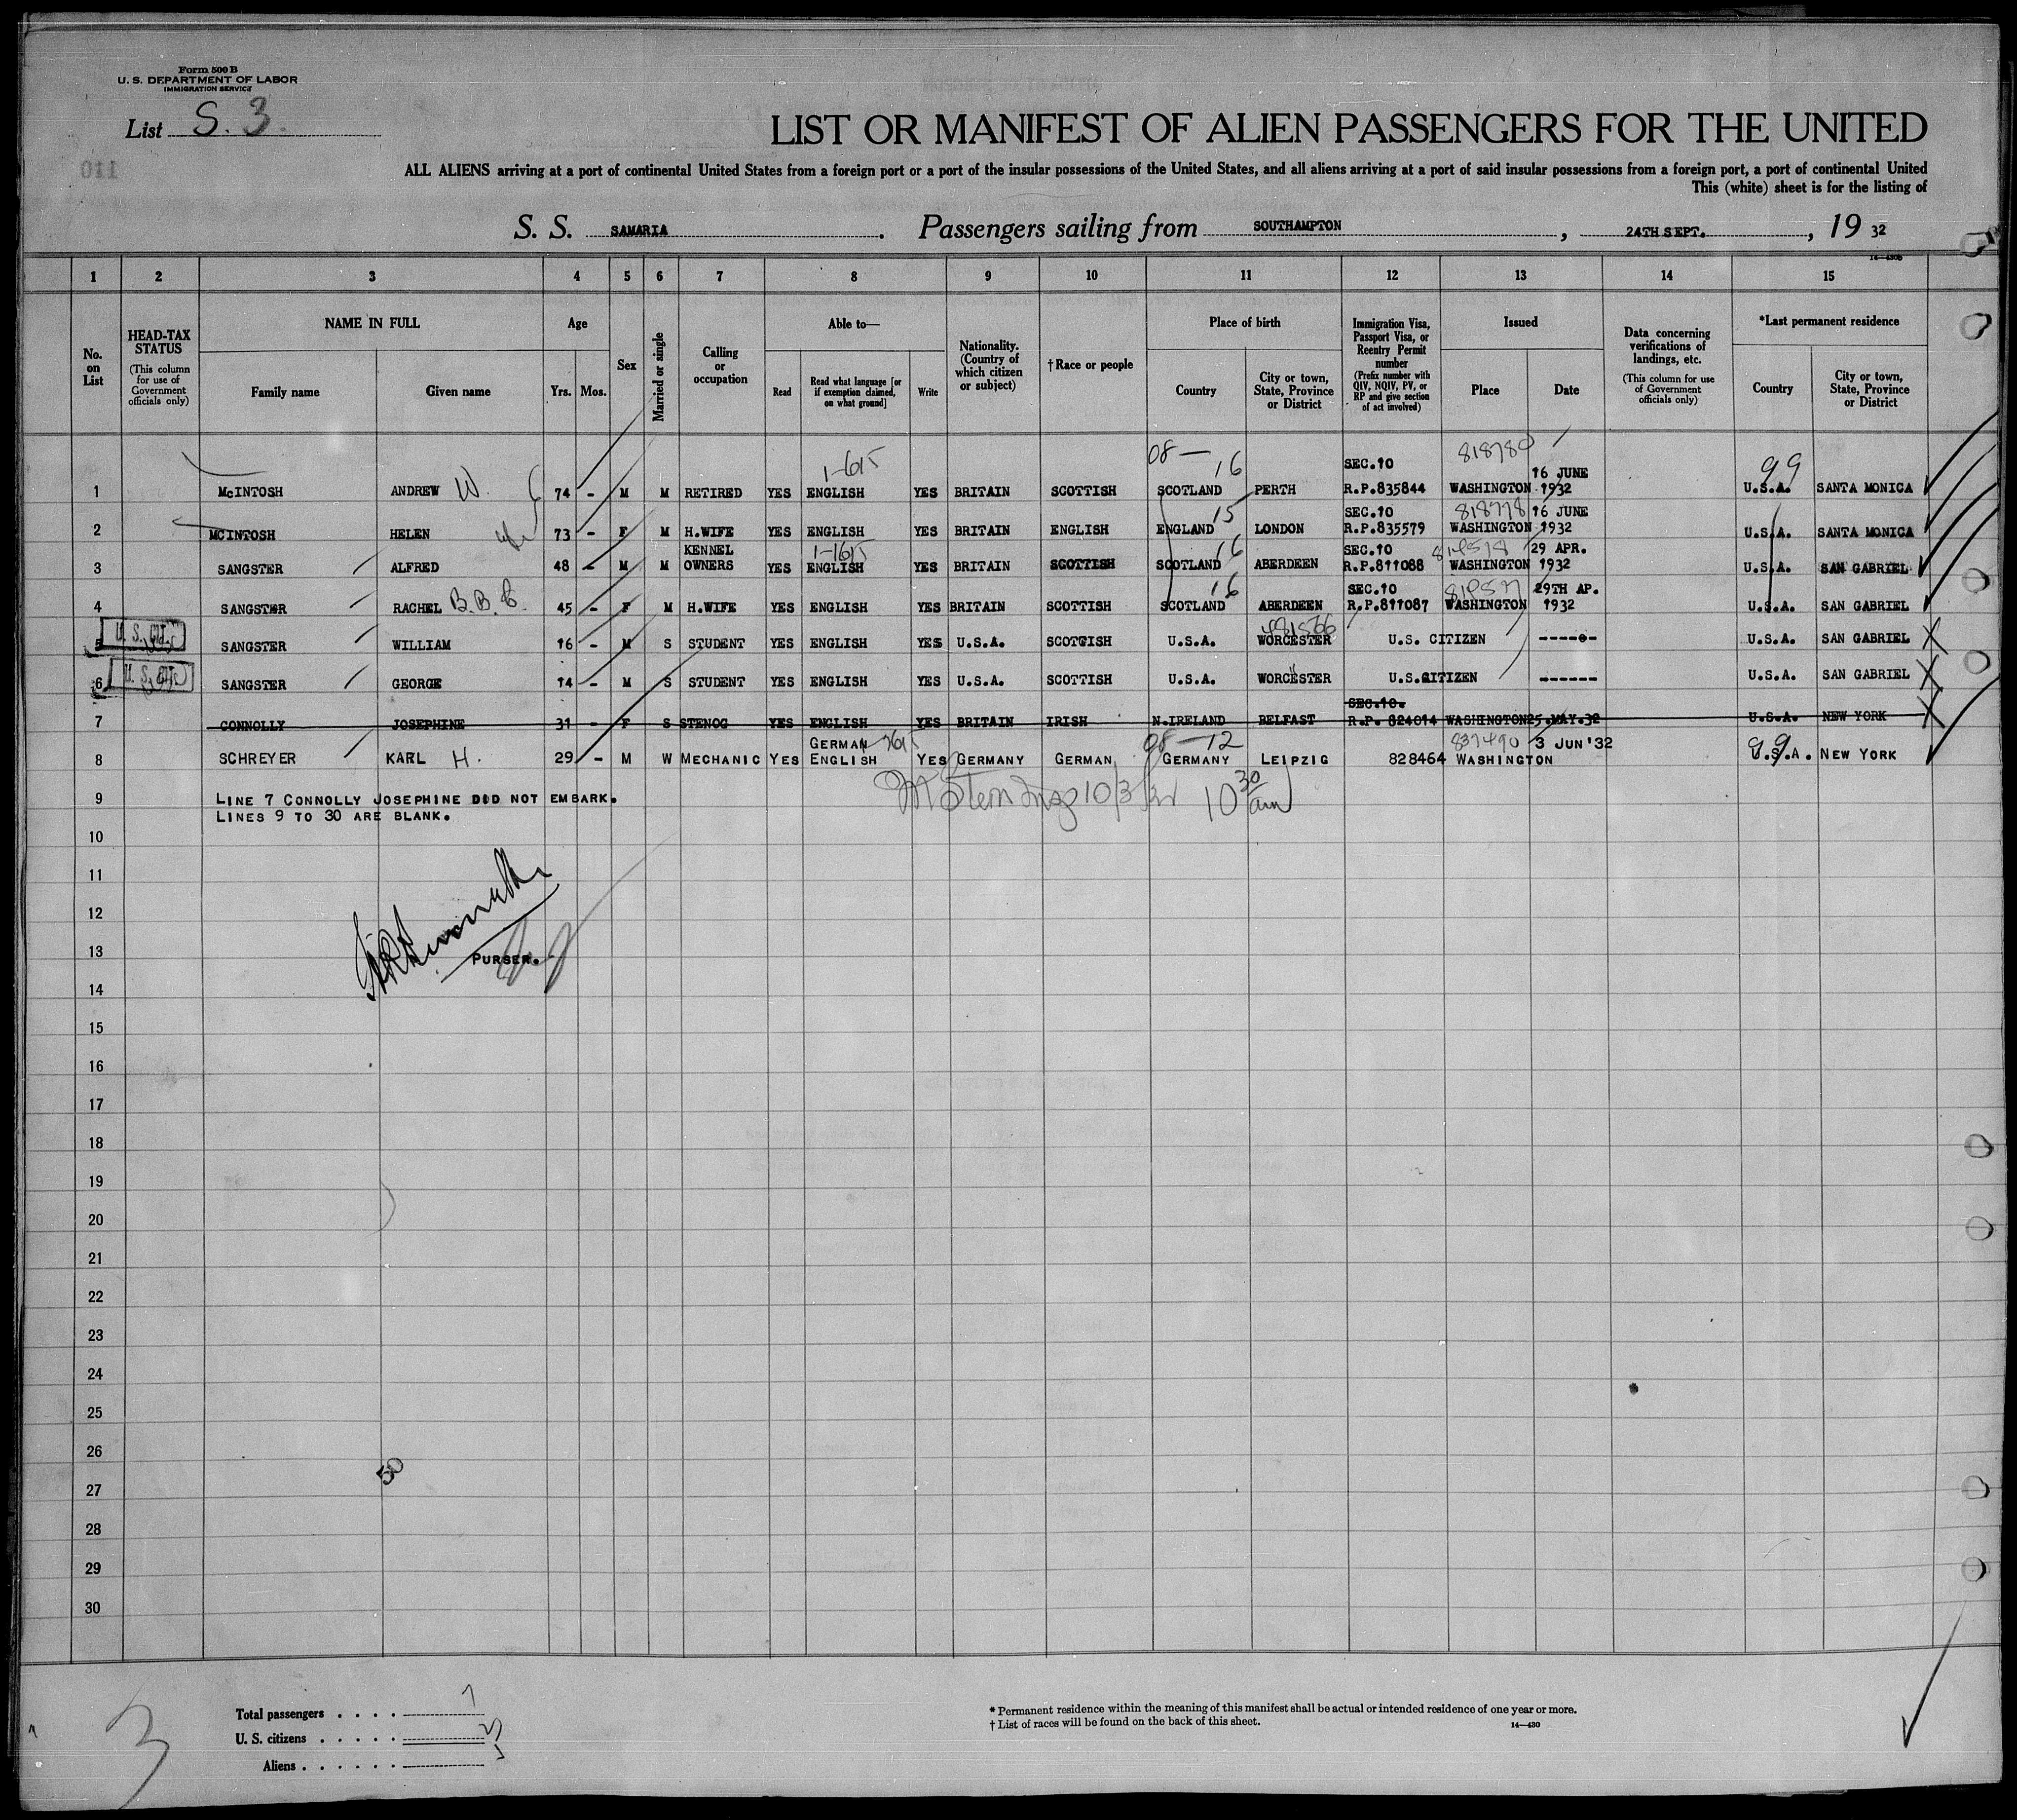 Form 500 B
U. S. DEPARTMENT OF LABOR
IMMIGRATION SERVICE
List S. 3.
110
LIST OR MANIFEST OF ALIEN PASSENGERS FOR THE UNITED
ALL ALIENS arriving at a port of continental United States from a foreign port or a port of the insular possessions of the United States, and all aliens arriving at a port of said insular possessions from a foreign port, a port of continental United
This (white) sheet is for the listing of
S. S. SAMARIA. Passengers sailing from SOUTHAMPTON, 24TH SEPT., 19 32
1 2 3 4 5 6 7 8 9 10 11 12 13 14 15
No. on List
HEAD-TAX STATUS (This column for use of Government officials only)
NAME IN FULL Family name Given name
Age Yrs. Mos.
Sex
Married or single
Calling or occupation
Able to— Read Read what language [or if exemption claimed, on what ground] Write
Nationality. (Country of which citizen or subject)
†Race or people
Place of birth Country City or town, State, Province or District
Immigration Visa, Passport Visa, or Reentry Permit number (Prefix number with QIV, NQIV, PV, or RP and give section of act involved)
Issued Place Date
Data concerning verifications of landings, etc. (This column for use of Government officials only)
*Last permanent residence Country City or town, State, Province or District
08— 16 SEC.10 818780 16 JUNE 99
1 McINTOSH ANDREW W. 74 - M M RETIRED YES ENGLISH YES BRITAIN SCOTTISH SCOTLAND PERTH R.P.835844 WASHINGTON 1932 U.S.A. SANTA MONICA
15 SEC.10 818778 16 JUNE
2 MCINTOSH HELEN 73 - F M H.WIFE YES ENGLISH YES BRITAIN ENGLISH ENGLAND LONDON R.P.835579 WASHINGTON 1932 U.S.A. SANTA MONICA
KENNEL 16 SEC.10 29 APR.
3 SANGSTER ALFRED 48 - M M OWNERS YES ENGLISH YES BRITAIN SCOTTISH SCOTLAND ABERDEEN R.P.811088 WASHINGTON 1932 U.S.A. SAN GABRIEL
16 SEC.10 29TH AP.
4 SANGSTER RACHEL B.B. 45 - F M H.WIFE YES ENGLISH YES BRITAIN SCOTTISH SCOTLAND ABERDEEN R.P.811087 WASHINGTON 1932 U.S.A. SAN GABRIEL
5 SANGSTER WILLIAM 16 - M S STUDENT YES ENGLISH YES U.S.A. SCOTTISH U.S.A. WORCESTER U.S. CITIZEN ------ U.S.A. SAN GABRIEL
6 SANGSTER GEORGE 14 - M S STUDENT YES ENGLISH YES U.S.A. SCOTTISH U.S.A. WORCESTER U.S.CITIZEN ------ U.S.A. SAN GABRIEL
SEC.10.
7 CONNOLLY JOSEPHINE 31 - F S STENOG YES ENGLISH YES BRITAIN IRISH N.IRELAND BELFAST R.P. 824014 WASHINGTON 25.MAY.32 U.S.A. NEW YORK
GERMAN 08—12 837490 3 JUN '32
8 SCHREYER KARL H. 29 - M W MECHANIC YES ENGLISH YES GERMANY GERMAN GERMANY LEIPZIG 828464 WASHINGTON U.S.A. NEW YORK
9 LINE 7 CONNOLLY JOSEPHINE DID NOT EMBARK. 10/3/32 10 30 am
LINES 9 TO 30 ARE BLANK.
10
11
12
13 PURSER.
14
15
16
17
18
19
20
21
22
23
24
25
26
50
27
28
29
30
3
Total passengers . . . . 7
U. S. citizens . . . . . 2
Aliens . . . . . . 5
* Permanent residence within the meaning of this manifest shall be actual or intended residence of one year or more.
† List of races will be found on the back of this sheet. 14—430